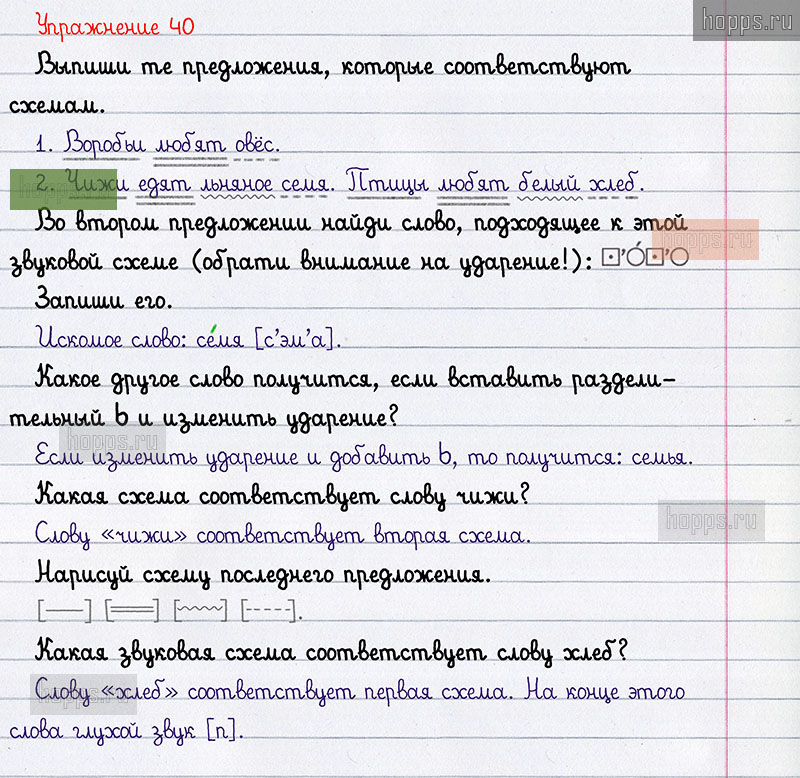 hopps.ru
Упражнение 40
Выпиши те предложения, которые соответствуют
схемам.
1. Воробьи любят овёс.
2. Чижи едят льняное семя. Птицы любят белый хлеб.
Во втором предложении найди слово, подходящее к этой
звуковой схеме (обрати внимание на ударение!):
Запиши его.
Искомое слово: се́мя [с’эм’а].
Какое другое слово получится, если вставить раздели-
тельный ь и изменить ударение?
Если изменить ударение и добавить ь, то получится: семья.
Какая схема соответствует слову чижи?
Слову «чижи» соответствует вторая схема.
Нарисуй схему последнего предложения.
Какая звуковая схема соответствует слову хлеб?
Слову «хлеб» соответствует первая схема. На конце этого
слова глухой звук [п].
hopps.ru
hopps.ru
hopps.ru
hopps.ru
hopps.ru